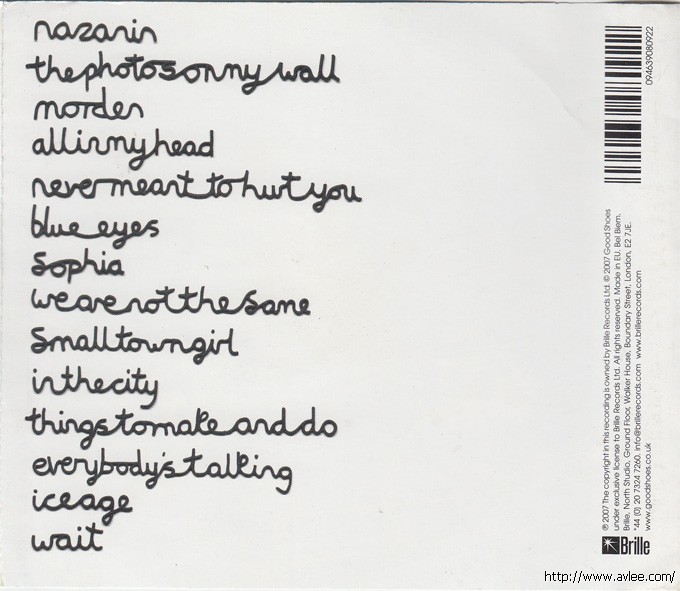 nazanin
the photos on my wall
morden
all in my head
never meant to hurt you
blue eyes
sophia
we are not the same
small town girl
in the city
things to make and do
everybody's talking
ice age
wait
094639080922
℗ 2007 The copyright in this recording is owned by Brille Records Ltd. © 2007 Good Shoes
under exclusive license to Brille Records Ltd. All rights reserved. Made in EU. Bel Biem.
Brille, North Studio, Ground Floor, Walker House, Boundary Street, London, E2 7JE.
+44 (0) 20 7324 7260. info@brillerecords.com www.brillerecords.com
www.goodshoes.co.uk
Brille
http://www.avlee.com/